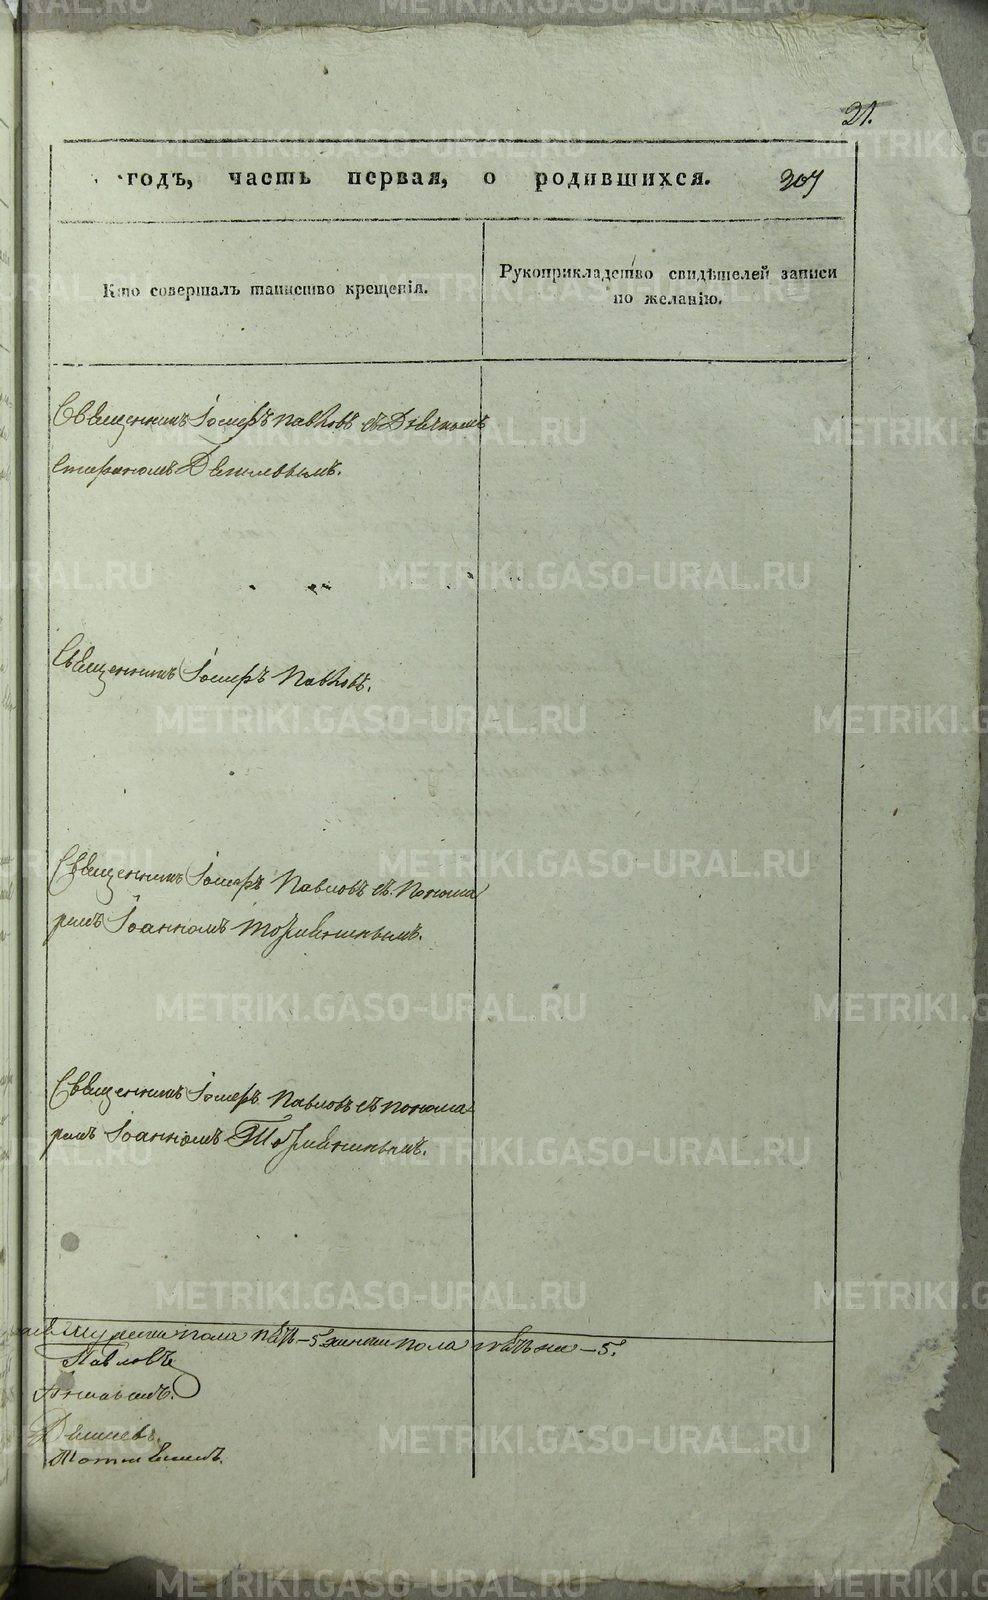 21.
годъ, часть первая, о родившихся. 207
Кто совершалъ таинство крещенія.
Рукоприкладство свидѣтелей записи
по желанію.
Священникъ Іосифъ Павловъ съ Дьячкомъ
Стефаномъ
Священникъ Іосифъ Павловъ.
Священникъ Іосифъ Павловъ съ понома
ремъ Іоанномъ
Священникъ Іосифъ Павловъ съ понома
ремъ Іоанномъ
Мужеска пола пять – 5 женска пола пять – 5.
Павловъ
METRIKI.GASO-URAL.RU